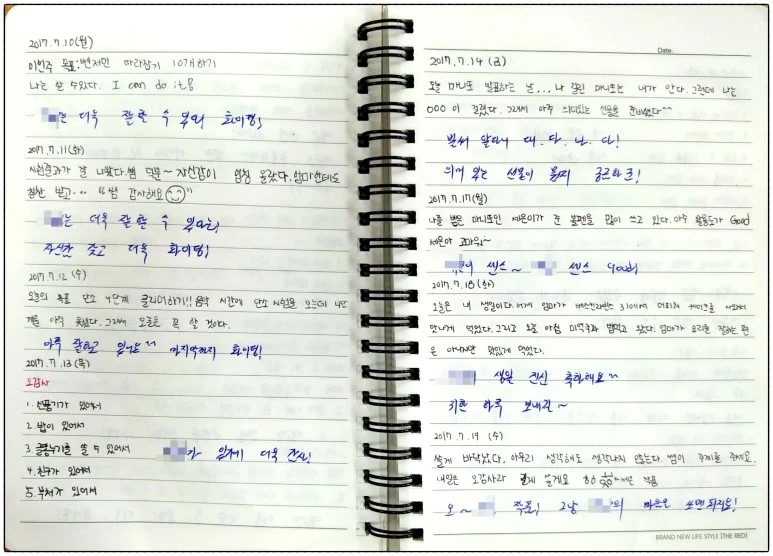 2017.7.10(월)
이번주 목표: 벤저민 따라잡기 10개하기
나는 할 수 있다. I can do it!
는 더욱 잘할 수 있어 화이팅!
2017.7.11(화)
시험결과가 잘 나왔다. 쌤 덕분~ 자신감이 엄청 올랐다. 엄마한테도
칭찬 받고.. "쌤 감사해요
는 더욱 잘 할 수 있어요!
자신감 갖고 더욱 화이팅!
2017.7.12 (수)
오늘의 목표 단소 4단계 클리어하기!! 음악 시간에 단소 시험을 보는데 4단
계를 아직 못했다. 그래서 오늘은 꼭 할 것이다.
아주 잘하고 있어요^^ 마지막까지 화이팅!
2017.7.13 (목)
오감사
1. 선풍기가 있어서
2. 밥이 있어서
3. 쓸 수 있어서
가 있기에 더욱 감사!
4. 친구가 있어서
5. 부채가 있어서
Date.
2017.7.14 (금)
오늘 마니또 발표하는 날... 나 걸린 마니또는 내가 안다. 그런데 나는
OOO이 걸렸다. 그래서 아주 의미있는 선물을 준비했다^^
벌써 알다니 대.다.나.다!
의미 있는 선물이 뭘지 궁금하군!
2017.7.17(월)
나를 뽑은 마니또인 세은이가 준 볼펜을 많이 쓰고 있다. 아주 활용도가 Good
세은아 고마워~
의 센스~ 센스 Good!
2017.7.18 (화)
오늘은 내 생일이다. 어제 엄마가 베스킨라빈스 31에서 케이크를 사와서
맛나게 먹었다. 그리고 오늘 아침 미역국과 밥먹고 왔다. 엄마가 요리를 잘하는 편
은 아니지만 맛있게 먹었다.
생일 진심 축하해요~
귀한 하루 보내길~
2017.7.19 (수)
쓸게 바닥났다. 아무리 생각해도 생각나지 않는다. 쌤이 주제를 주세요.
내일은 오감사라 쓸게요
오~ 주제! 그냥 의 마음은 쓰면 되지요!
BRAND NEW LIFE STYLE [THE RED]